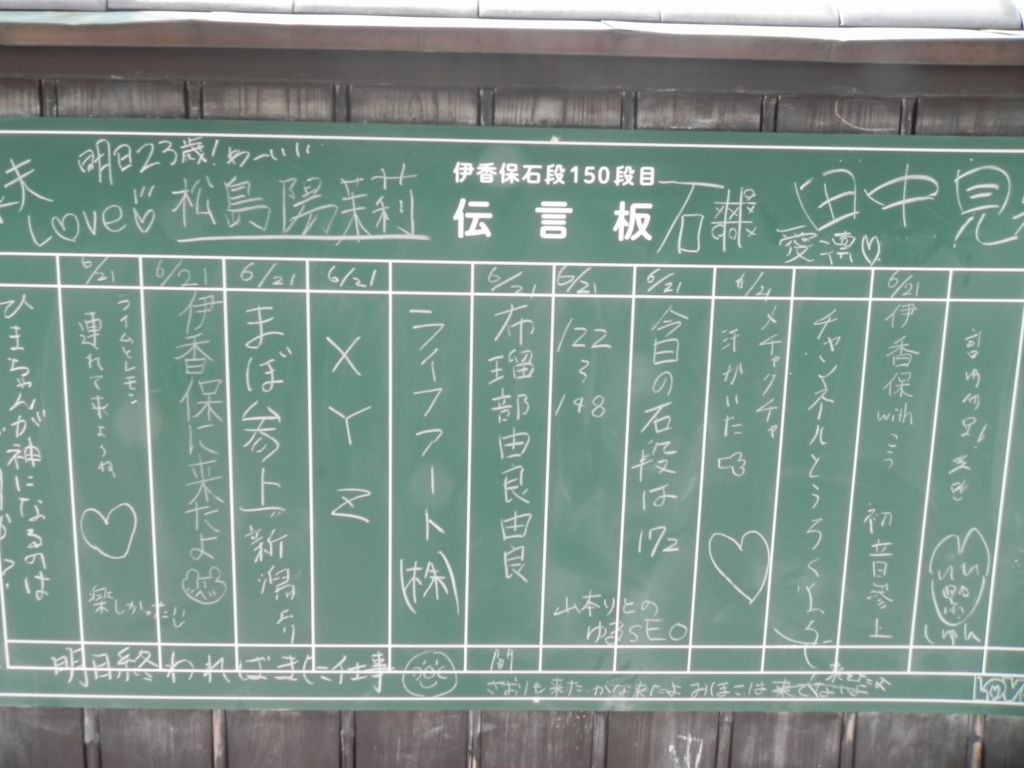 伊香保石段150段目
伝言板
明日23歳!
夫
LOVE
松島陽茉莉
石
愛凛♡
田中見
6/21
伊香保 with こう 初音参上
チャンネルとうろくよろしく
6/21
メチャクチャ
汗かいた
6/21
今日の石段は172
6/21
122
3
148
山本りとの
ゆるSEO
6/21
布瑠部由良由良
ライフフート(株)
6/21
XYZ
6/21
まぼ参上 新潟より
6/21
伊香保に来たよ
6/21
ライムとレモン
連れて来ようね
楽しかった!!
ひまちゃんが神になるのは
明日終わればまた仕事
さおりも来た かな来たよ みほこは来てないよ